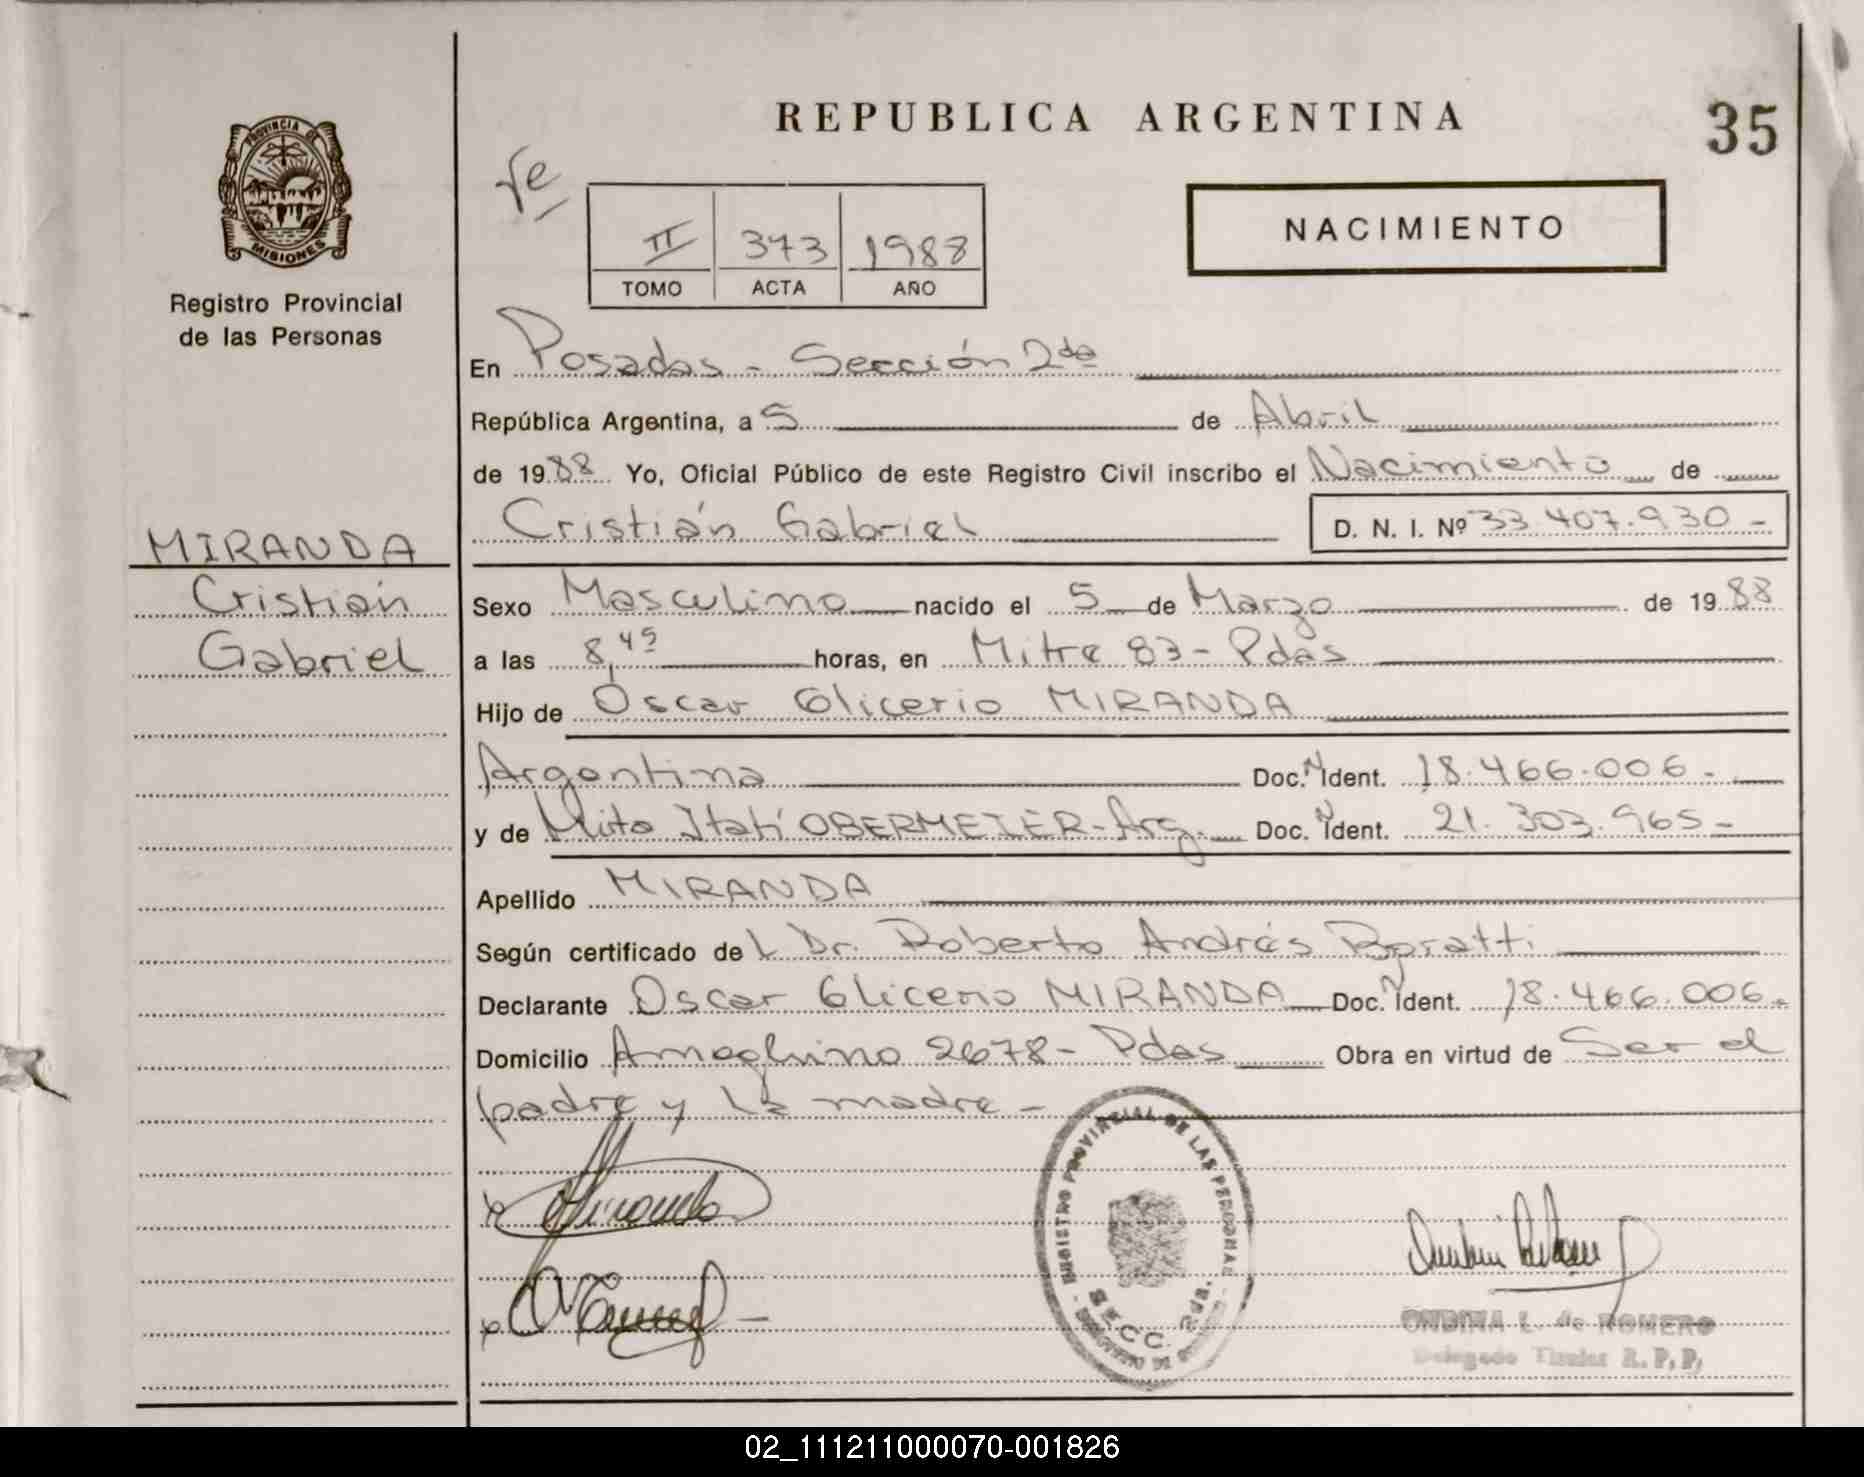 REPUBLICA ARGENTINA
35
PROVINCIA DE
MISIONES
Registro Provincial
de las Personas
II 373 1988
TOMO ACTA AÑO
NACIMIENTO
En Posadas - Sección 2da
República Argentina, a 5 de Abril
de 1988 Yo, Oficial Público de este Registro Civil inscribo el Nacimiento de
Cristián Gabriel D. N. I. Nº 33.407.930 -
MIRANDA
Cristián
Gabriel
Sexo Masculino nacido el 5 de Marzo de 1988
a las 8,45 horas, en Mitre 83 - Pdas
Hijo de Oscar Glicerio MIRANDA
Argentina Doc. N Ident. 18.466.006.-
y de Itatí OBERMEIER - Arg. Doc. N Ident. 21.303.965 -
Apellido MIRANDA
Según certificado del Dr. Roberto Andrés
Declarante Oscar Glicerio MIRANDA Doc. N Ident. 18.466.006.-
Domicilio Ameghino 2678 - Pdas Obra en virtud de Ser el
padre y la madre -
REGISTRO PROVINCIAL DE LAS PERSONAS
SECC. 2da.
ONDINA L. de ROMERO
Delegado Titular R.P.P.
02_111211000070-001826